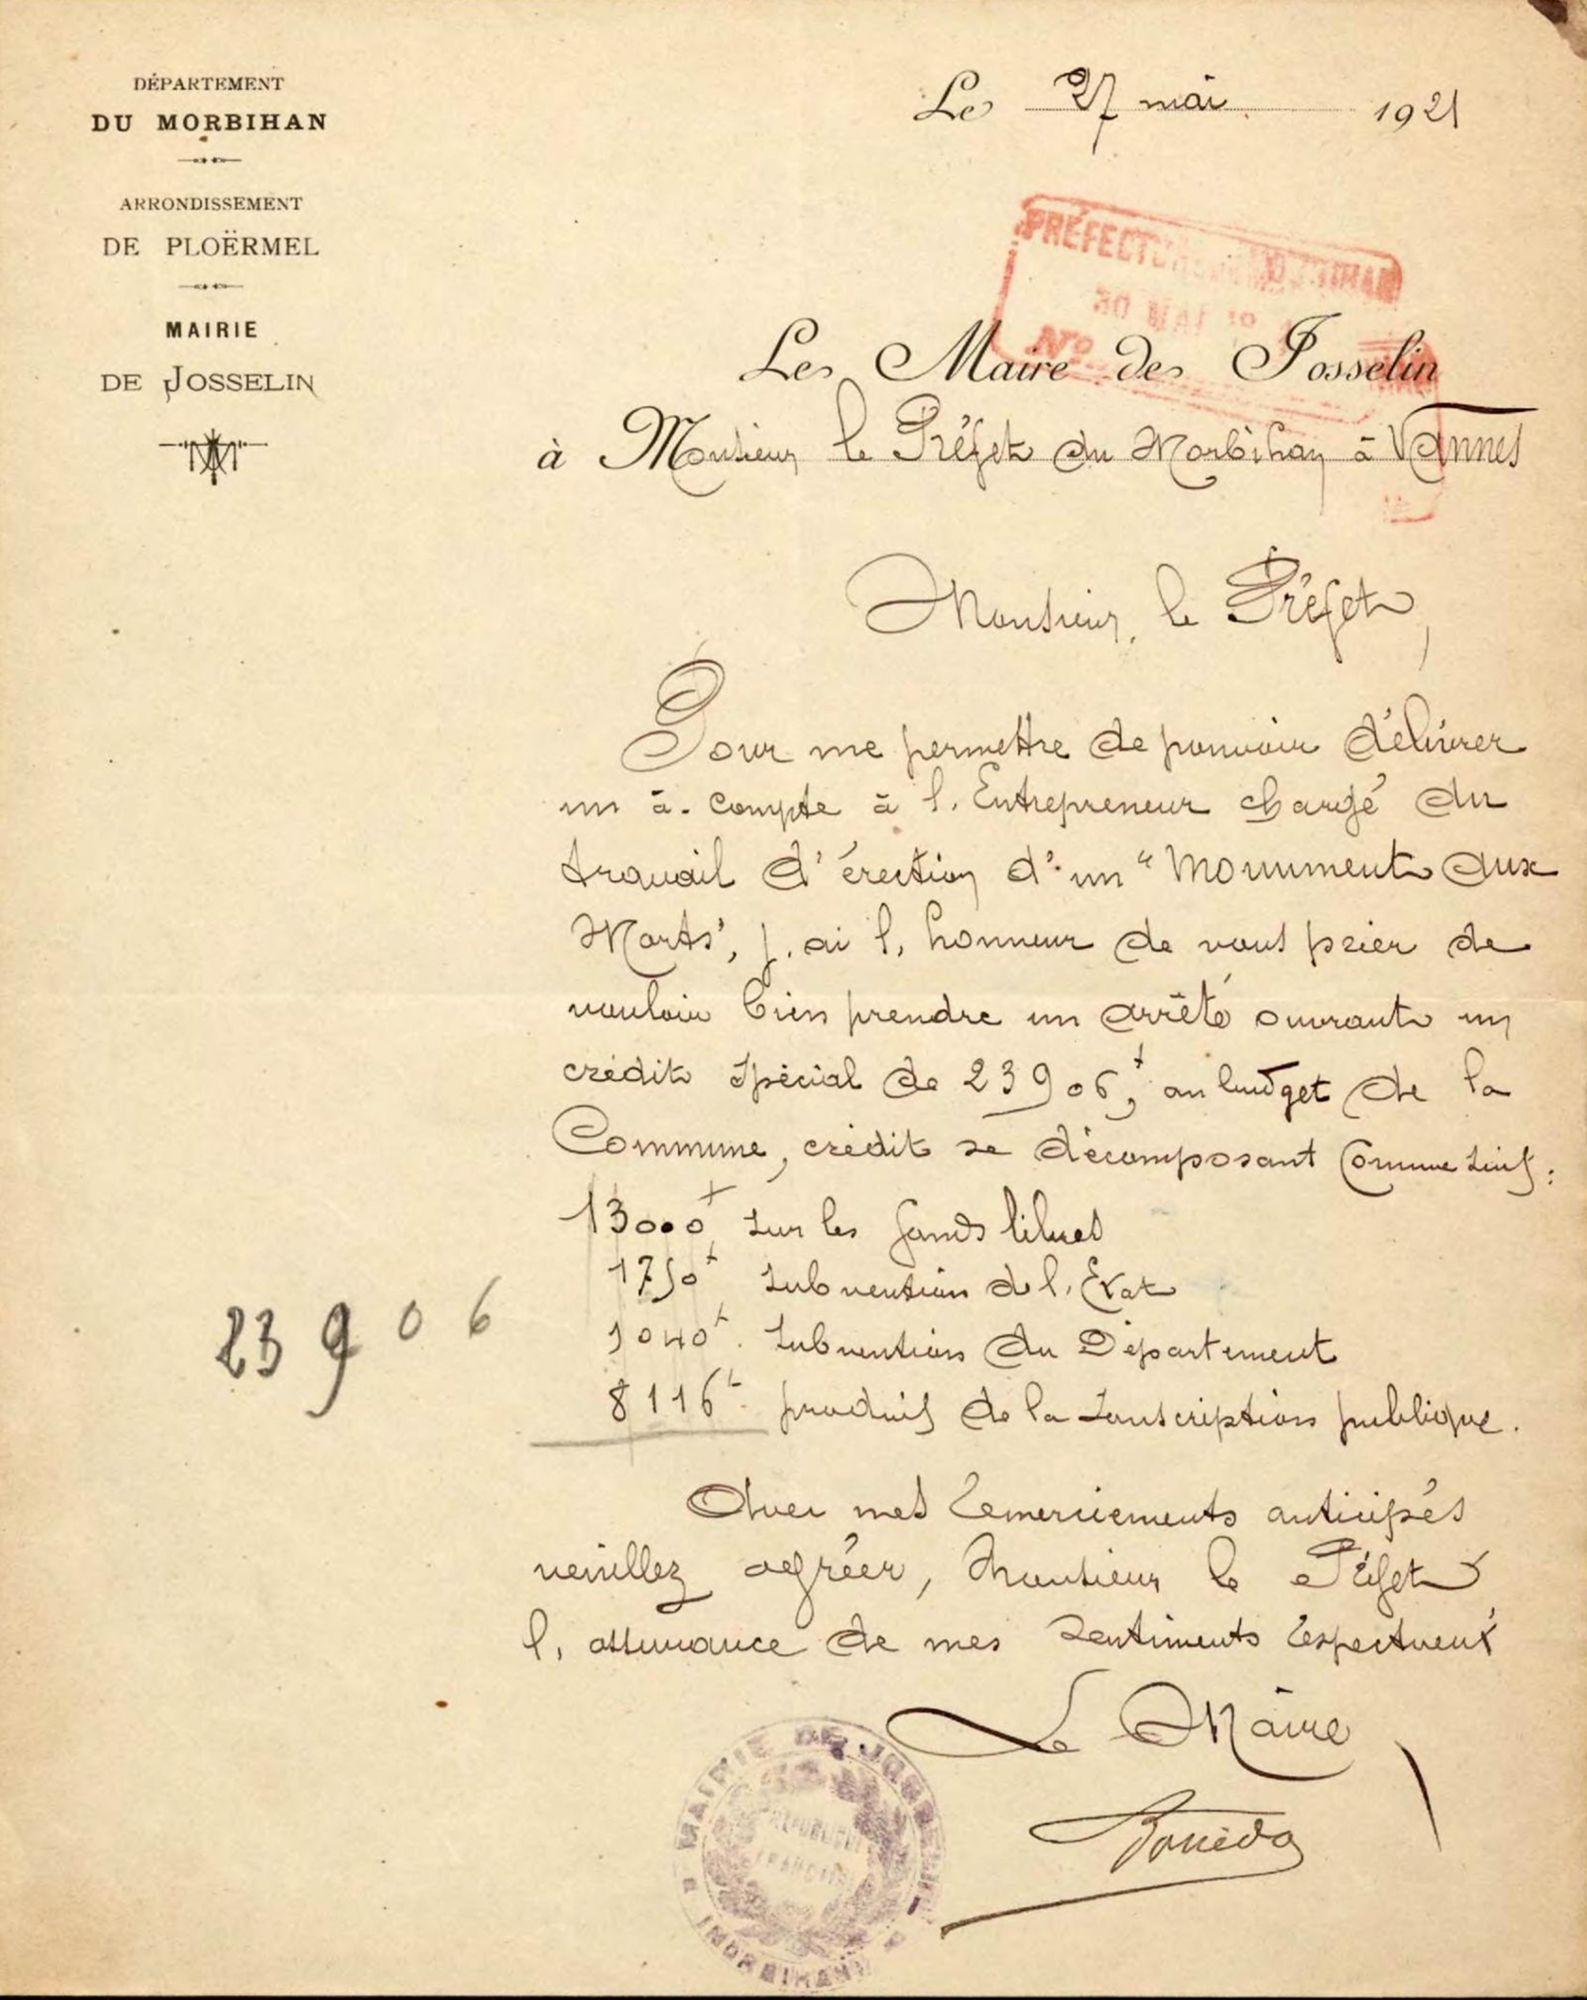 DÉPARTEMENT
DU MORBIHAN
ARRONDISSEMENT
DE PLOËRMEL
MAIRIE
DE JOSSELIN
Le 27 mai 1921
PRÉFECTURE DU MORBIHAN
30 MAI 19
N°
Le Maire de Josselin
à Monsieur le Préfet du Morbihan à Vannes
Monsieur le Préfet,
Pour me permettre de pouvoir délivrer
un à-compte à l'Entrepreneur chargé du
travail d'érection d'un "Monument aux
Morts", j'ai l'honneur de vous prier de
vouloir bien prendre un arrêté ouvrant un
crédit spécial de 23906f, au budget de la
Commune, crédit se décomposant comme suit :
13000f sur les fonds libres
1750f subvention de l'Etat
1040f subvention du Département
8116f produit de la souscription publique.
23906
Avec mes remerciements anticipés
veuillez agréer, Monsieur le Préfet
l'assurance de mes sentiments respectueux
Le Maire
MAIRIE DE JOSSELIN
RÉPUBLIQUE
FRANÇAISE
(MORBIHAN)